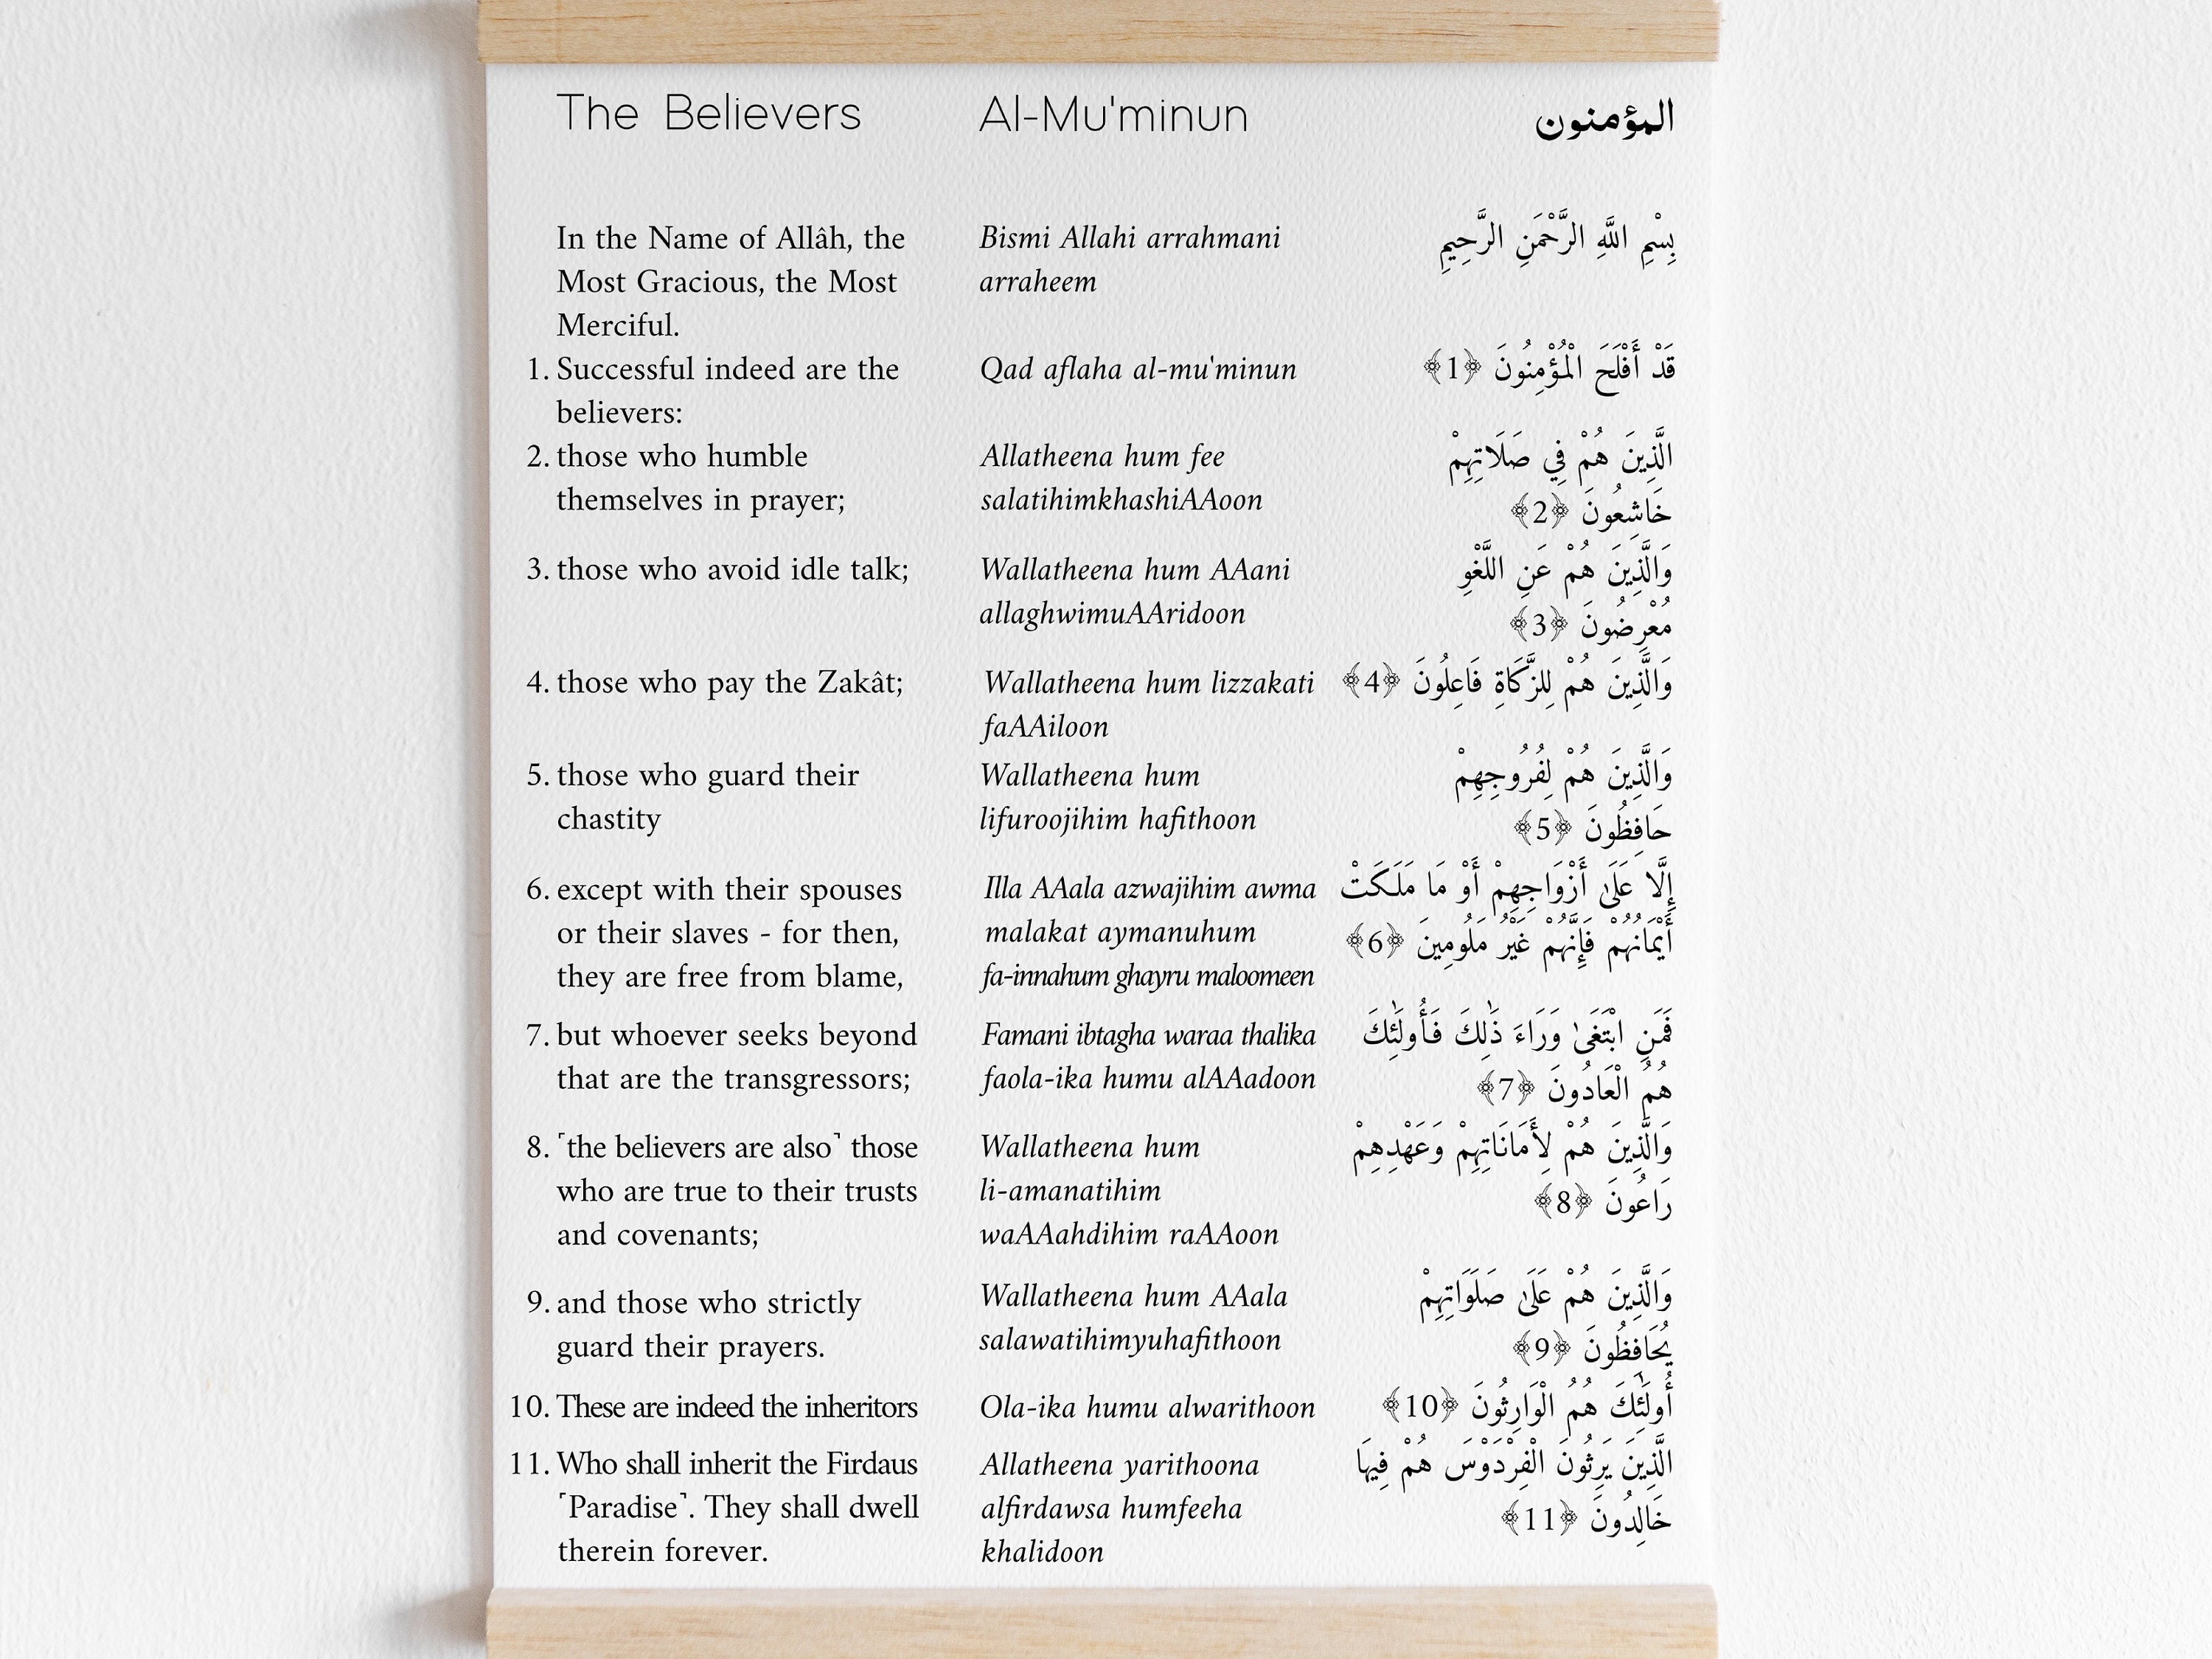 The Believers
Al-Mu'minun
المؤمنون
In the Name of Allâh, the
Most Gracious, the Most
Merciful.
Bismi Allahi arrahmani
arraheem
بِسْمِ اللَّهِ الرَّحْمَنِ الرَّحِيمِ
1. Successful indeed are the
believers:
Qad aflaha al-mu'minun
قَدْ أَفْلَحَ الْمُؤْمِنُونَ ﴿1﴾
2. those who humble
themselves in prayer;
Allatheena hum fee
salatihimkhashiAAoon
الَّذِينَ هُمْ فِي صَلَاتِهِمْ
خَاشِعُونَ ﴿2﴾
3. those who avoid idle talk;
Wallatheena hum AAani
allaghwimuAAridoon
وَالَّذِينَ هُمْ عَنِ اللَّغْوِ
مُعْرِضُونَ ﴿3﴾
4. those who pay the Zakât;
Wallatheena hum lizzakati
faAAiloon
وَالَّذِينَ هُمْ لِلزَّكَاةِ فَاعِلُونَ ﴿4﴾
5. those who guard their
chastity
Wallatheena hum
lifuroojihim hafithoon
وَالَّذِينَ هُمْ لِفُرُوجِهِمْ
حَافِظُونَ ﴿5﴾
6. except with their spouses
or their slaves - for then,
they are free from blame,
Illa AAala azwajihim awma
malakat aymanuhum
fa-innahum ghayru maloomeen
إِلَّا عَلَىٰ أَزْوَاجِهِمْ أَوْ مَا مَلَكَتْ
أَيْمَانُهُمْ فَإِنَّهُمْ غَيْرُ مَلُومِينَ ﴿6﴾
7. but whoever seeks beyond
that are the transgressors;
Famani ibtagha waraa thalika
faola-ika humu alAAadoon
فَمَنِ ابْتَغَىٰ وَرَاءَ ذَٰلِكَ فَأُولَٰئِكَ
هُمُ الْعَادُونَ ﴿7﴾
8. ⸢the believers are also⸣ those
who are true to their trusts
and covenants;
Wallatheena hum
li-amanatihim
waAAahdihim raAAoon
وَالَّذِينَ هُمْ لِأَمَانَاتِهِمْ وَعَهْدِهِمْ
رَاعُونَ ﴿8﴾
9. and those who strictly
guard their prayers.
Wallatheena hum AAala
salawatihimyuhafithoon
وَالَّذِينَ هُمْ عَلَىٰ صَلَوَاتِهِمْ
يُحَافِظُونَ ﴿9﴾
10. These are indeed the inheritors
Ola-ika humu alwarithoon
أُولَٰئِكَ هُمُ الْوَارِثُونَ ﴿10﴾
11. Who shall inherit the Firdaus
⸢Paradise⸣. They shall dwell
therein forever.
Allatheena yarithoona
alfirdawsa humfeeha
khalidoon
الَّذِينَ يَرِثُونَ الْفِرْدَوْسَ هُمْ فِيهَا
خَالِدُونَ ﴿11﴾